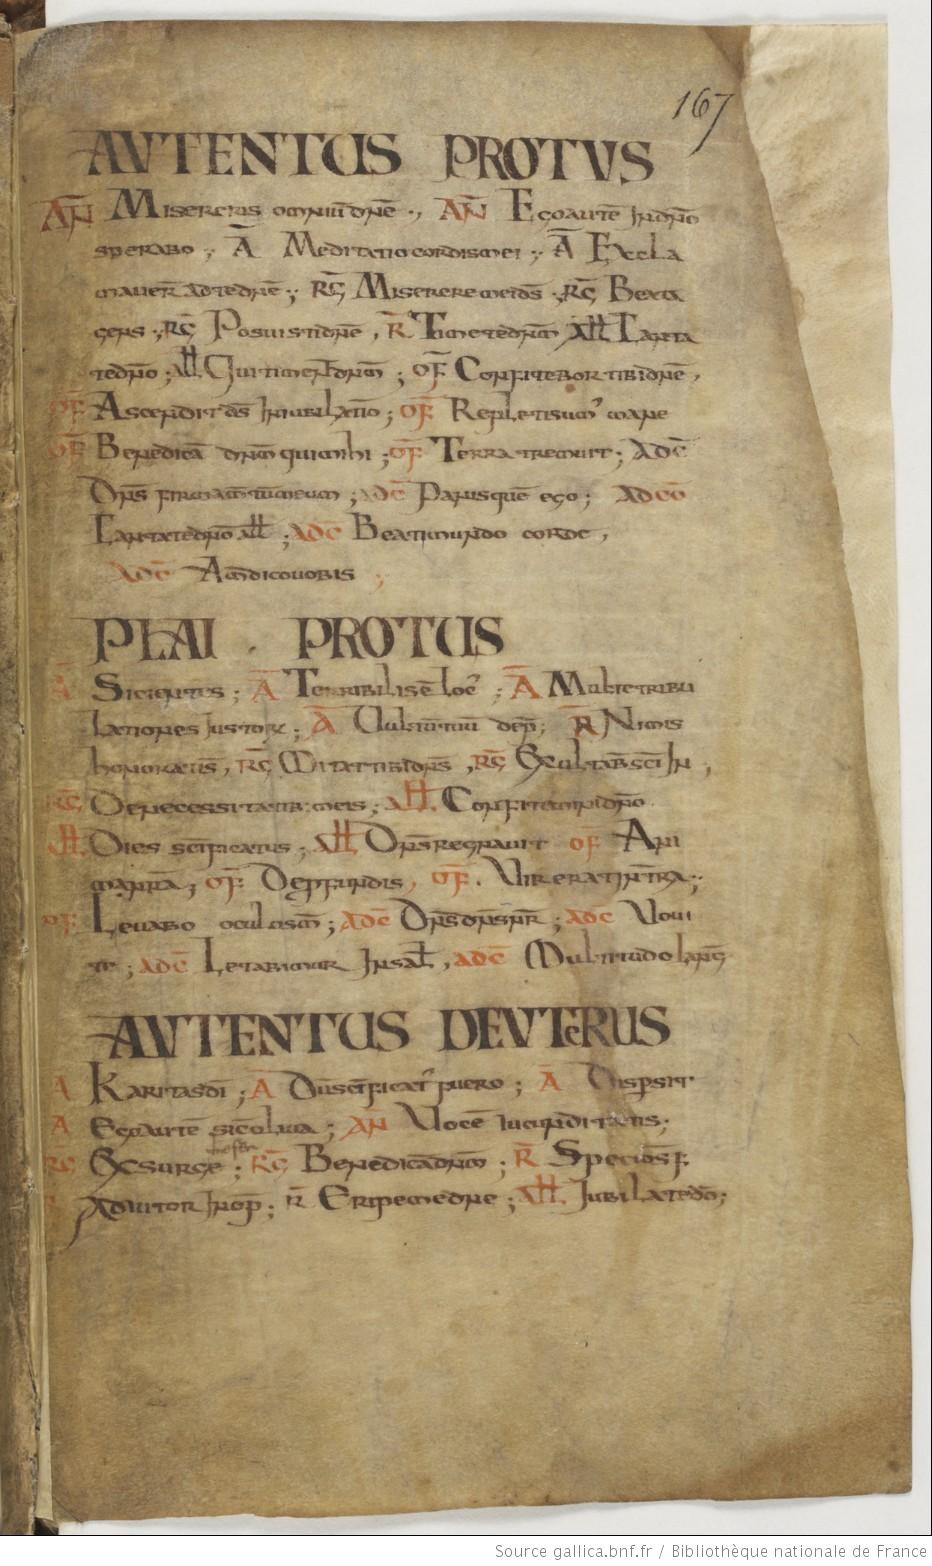 167
AVTENTUS PROTVS
AN̄ Misereris omniū dn̄e ., AN̄ Ego autē in dn̄o
sperabo ; Ā Meditatio cordis mei ; Ā Excla
maver̄ ad te dn̄e ; RḠ Miserere mei ds̄ ; RḠ Bexta
gers ; RḠ Posuisti dn̄e , R̄ Timete dn̄m All̄ Tanta
te dn̄o ; All̄ Qui timent dn̄m ; OF̄ Confitebor tibi dn̄e ,
OF̄ Ascendit ds̄ in iubilatio ; OF̄ Repleti sum' mane
OF̄ Benedicā dn̄m qui mihi ; OF̄ Terra tremuit ; AD C̄
Dn̄s firmam̄tū meum ; AD C̄ Panis quē ego ; AD CŌ
Cantate dn̄o all̄ ; AD C̄ Beati mundo corde ,
AD C̄ Am̄ dico vobis ;
PLAI . PROTUS
Ā Sicicutes ; Ā Terribilis ē loc' ; Ā Multe tribu
lationes iustor ; Ā Vultū tuū dep̄ ; R̄ Nimis
honorati s̄ , RḠ Mitat tibi dn̄s , RḠ Exultab sc̄i in ,
RḠ De necessitatib: meis ; All̄. Confitemini dn̄o
All̄. Dies sc̄ificatus ; All̄ Dn̄s regnavit OF̄ Ani
manrā ; OF̄ De pfundis , OF̄. Vir erat in t̄ra ;
OF̄ Levabo oculos m̄ ; AD C̄ Dn̄s dn̄s nr̄ ; AD C̄ Vovi
te ; AD C̄ Letabimur in sal̄ , AD C̄ Multitudo lanḡ
AVTENTUS DEVTeRUS
Ā Karitas dī ; Ā Dū sc̄ificat' fuero ; Ā Dispsit
Ā Ego autē sic oliva ; AN̄ Vocē iucunditatis ;
RḠ Exsurge ; RḠ Benedicā dn̄m ; R̄ Specios' f.
Adiutor inop̄ ; R̄ Eripe me dn̄e ; All̄. Jubilate dō ;
Source gallica.bnf.fr / Bibliothèque nationale de France